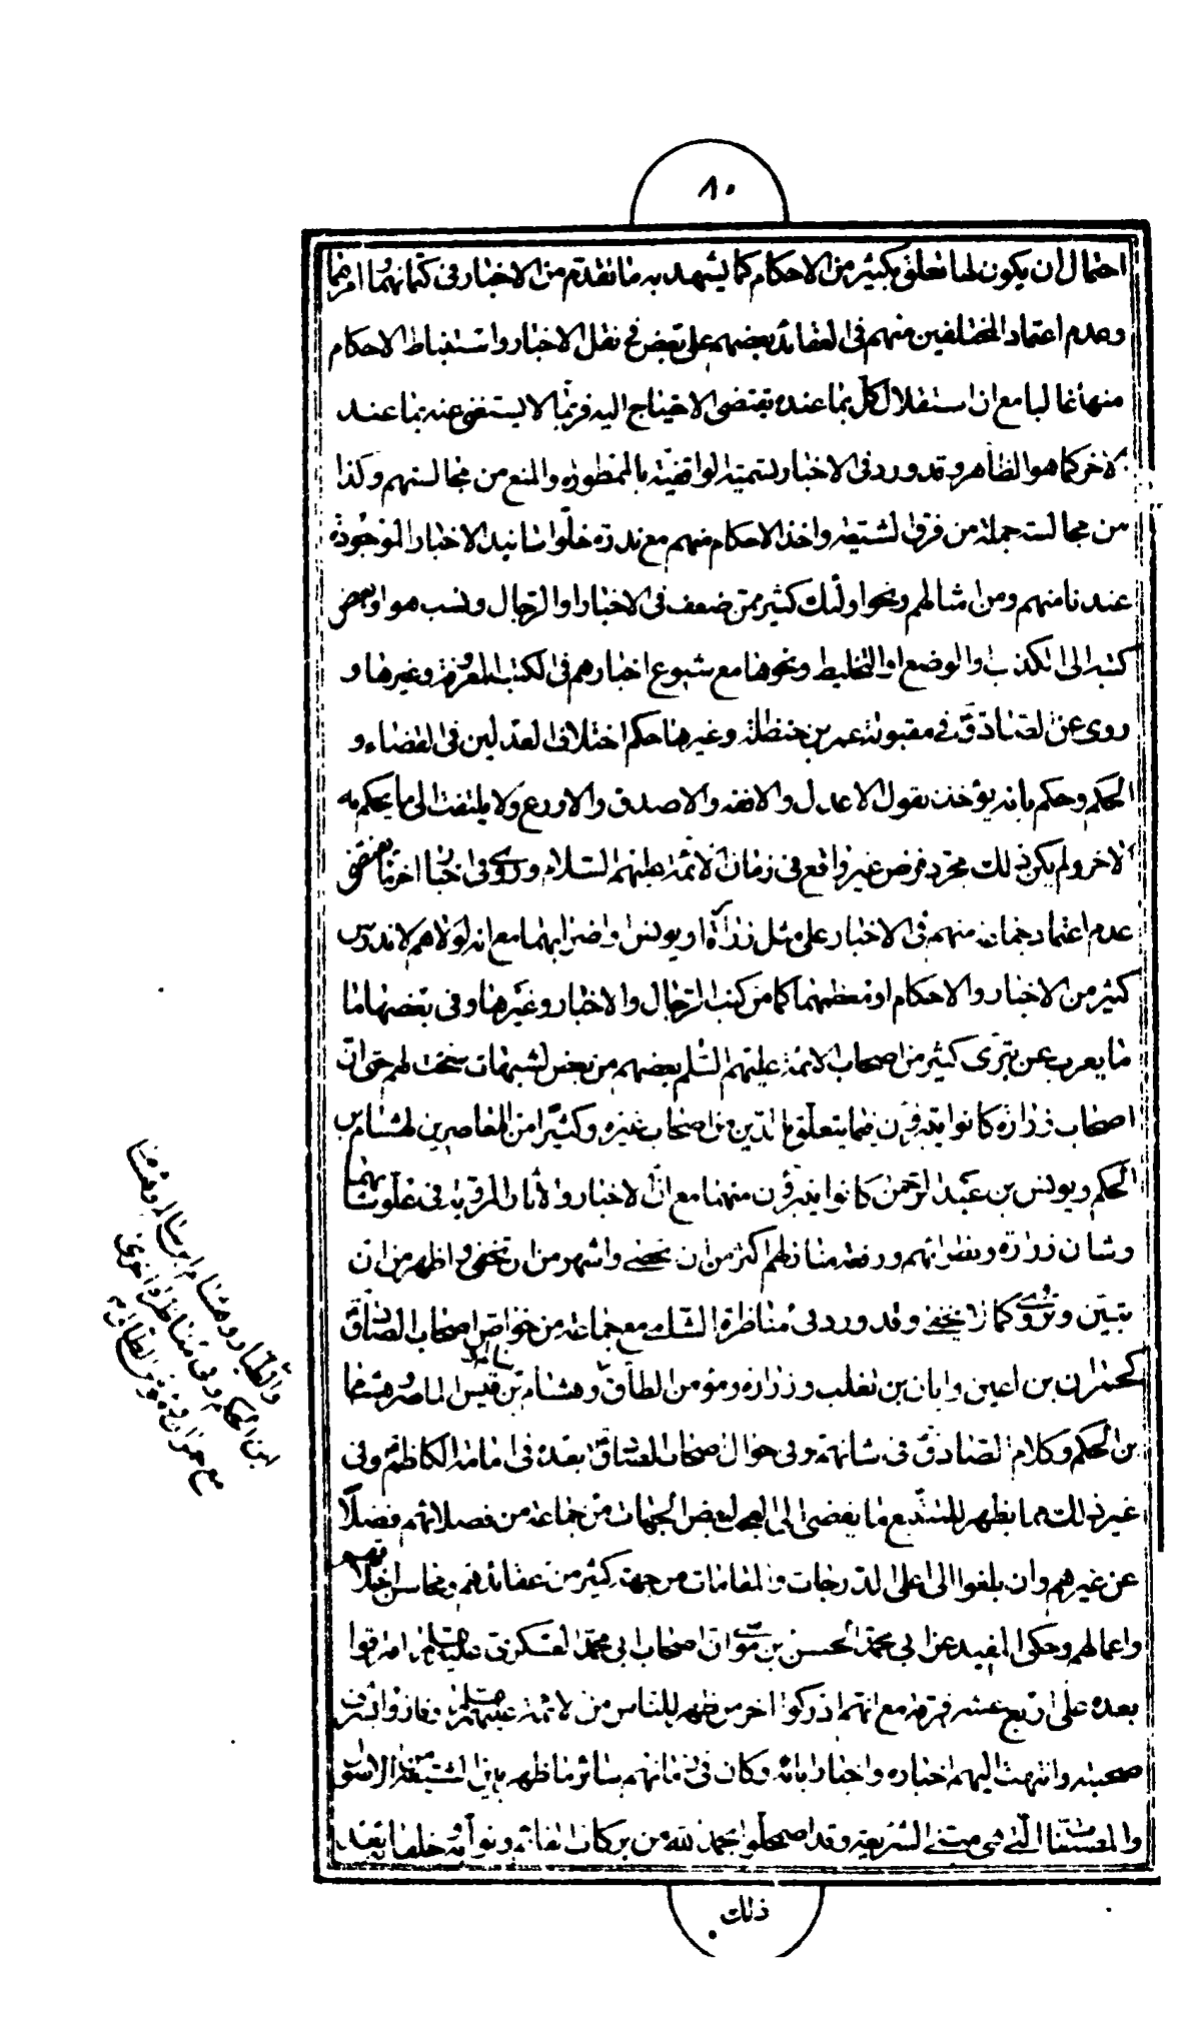 ٨٠
احتمال ان يكون لها تعلق بكثير من الاحكام كما يشهد به ما تقدم من الاخبار فى كتمانهما امرهما
وعدم اعتماد المختلفين منهم فى العقائد بعضهم على بعض فى نقل الاخبار واستنباط الاحكام
منها غالبا مع ان استقلال كل بما عنده يقتضى الاحتياج اليه فربما لا يستغنى عنه بما عند
الاخر كما هو الظاهر وقد ورد فى الاخبار تسمية الواقفية بالممطورة والمنع من مجالستهم وكذا
من مجالسة جملة من فرق الشيعة واخذ الاحكام منهم مع ندرة خلو اسانيد الاخبار الموجودة
عندنا منهم ومن امثالهم ونحو اولئك كثير ممن ضعف فى الاخبار او الرجال ونسب هو او بعض
كتبه الى الكذب او الوضع او التخليط ونحوها مع شيوع اخبارهم فى الكتب المعروفة وغيرها و
روى عن الصادق فى مقبولة عمر بن حنظلة وغيرها حكم اختلاف العدلين فى القضاء و
الحكم وحكم بانه يؤخذ بقول الاعدل والافقه والاصدق والاورع ولا يلتفت الى ما يحكم به
الاخر ولم يكن ذلك مجرد فرض غير واقع فى زمان الائمة عليهم السلام وروى فى اخبار اخر ما يقتضى
عدم اعتماد جماعة منهم فى الاخبار على مثل زرارة او يونس واضرابهما مع انه لولا هم لاندرس
كثير من الاخبار والاحكام او معظمهما كما من كتب الرجال والاخبار وغيرها وفى بعضها ما
ما يعرب عن تبرى كثير من اصحاب الائمة عليهم السلم بعضهم من بعض لشبهات سنحت لهم حتى ان
اصحاب زرارة كانوا يتبرؤن فيما يتعلق بالدين من اصحاب غيره وكثيرا من المعاصرين لهشام بن
الحكم ويونس بن عبد الرحمن كانوا يتبرؤن منهما مع ان الاخبار والاثار المروية فى علو شانهما
وشان زرارة ونظرائهم ورفعة منازلهم اكثر من ان تحصى واشهر من ان تخفى واظهر من ان
تبين وتروى كما لا يخفى وقد ورد فى مناظرة الشامى مع جماعة من خواص اصحاب الصادق
كحمران بن اعين وابان بن تغلب وزرارة ومؤمن الطاق وهشام بن قيس الماصر هشام
بن الحكم وكلام الصادق فى شانهم وفى احوال اصحاب الصادق بعده فى امامة الكاظم وفى
غير ذلك مما يظهر للمتتبع ما يفضى الى العجب لبعض الجهات من جماعة من فضلائهم فضلا
عن غيرهم وان بلغوا الى اعلى الدرجات والمقامات من جهة كثير من عقائدهم ومحاسن اخلاقهم
واعمالهم وحكى المفيد عن ابى محمد الحسن بن موسى ان اصحاب ابى محمد العسكرى افترقوا
بعده على اربع عشر فرقة مع انهم ادركوا اخر من ظهر للناس من الائمة عليهم السلم وفازوا بشرف
صحبته وانتهت اليهم اخباره واخبار ابائه وكان فى زمانهم سائر ما ظهر بين الشيعة الاصول
والمصنفات التى هى مبنى الشريعة وقد اضمحلوا بحمد الله من بركات انفاسه ونواب خلفائه بعد
ذلك
والطيار وهشام بن سالم وهشام
ابن الحكم وفى مناظرة اخرى
مع حمران ومؤمن الطاق